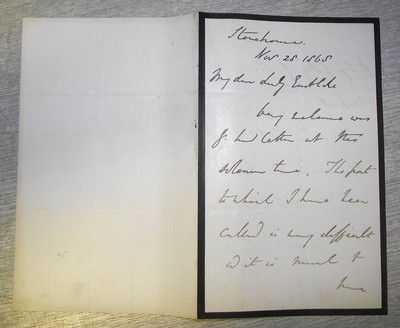 Stonehouse.
Nov. 28. 1868
My dear Lady Eastlake
very welcome was
yr kind letter at this
solemn time. The post
to which I have been
called is very difficult
& it is much to
me